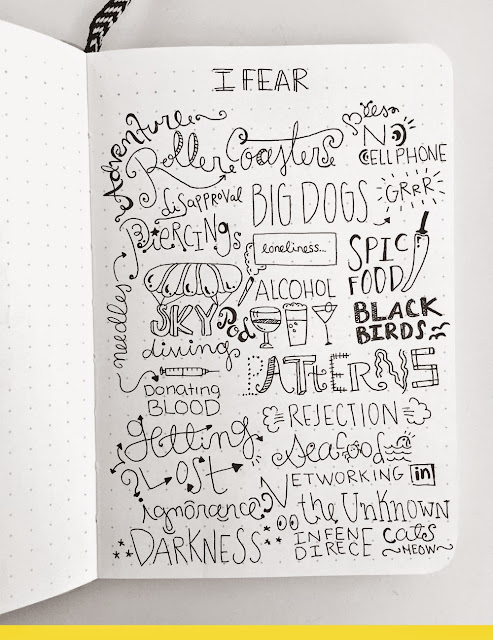 I FEAR
Adventure
NO
CELL PHONE
Roller Coasters
disapproval
BIG DOGS
GRRR
PiERCINgs
loneliness...
SPIC
FOOD
ALCOHOL
needles
SKY
diving
BLACK
BIRDS
PATTERNS
Donating
BLOOD
REJECTION
getting
Lost
Seafood
NETWORKING in
ignorance
the UnKnown
DARKNESS
INFENE
DIRECE
Cats
MEOW